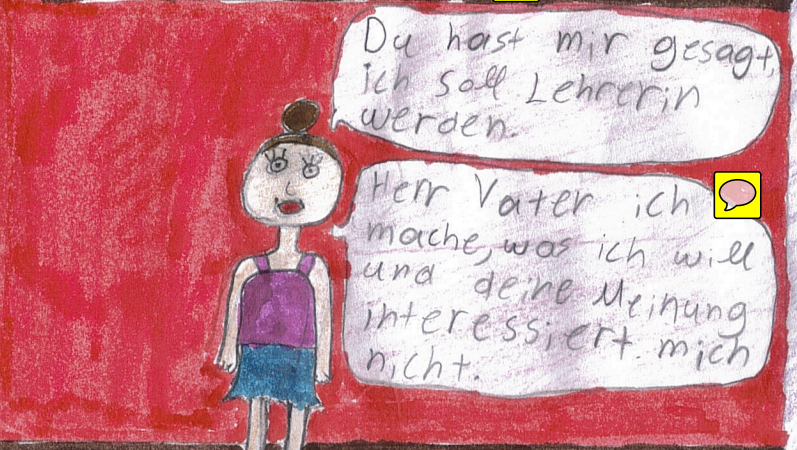 Du hast mir gesagt,
ich soll Lehrerin
werden.
Herr Vater ich
mache, was ich will
und deine Meinung
interessiert mich
nicht.